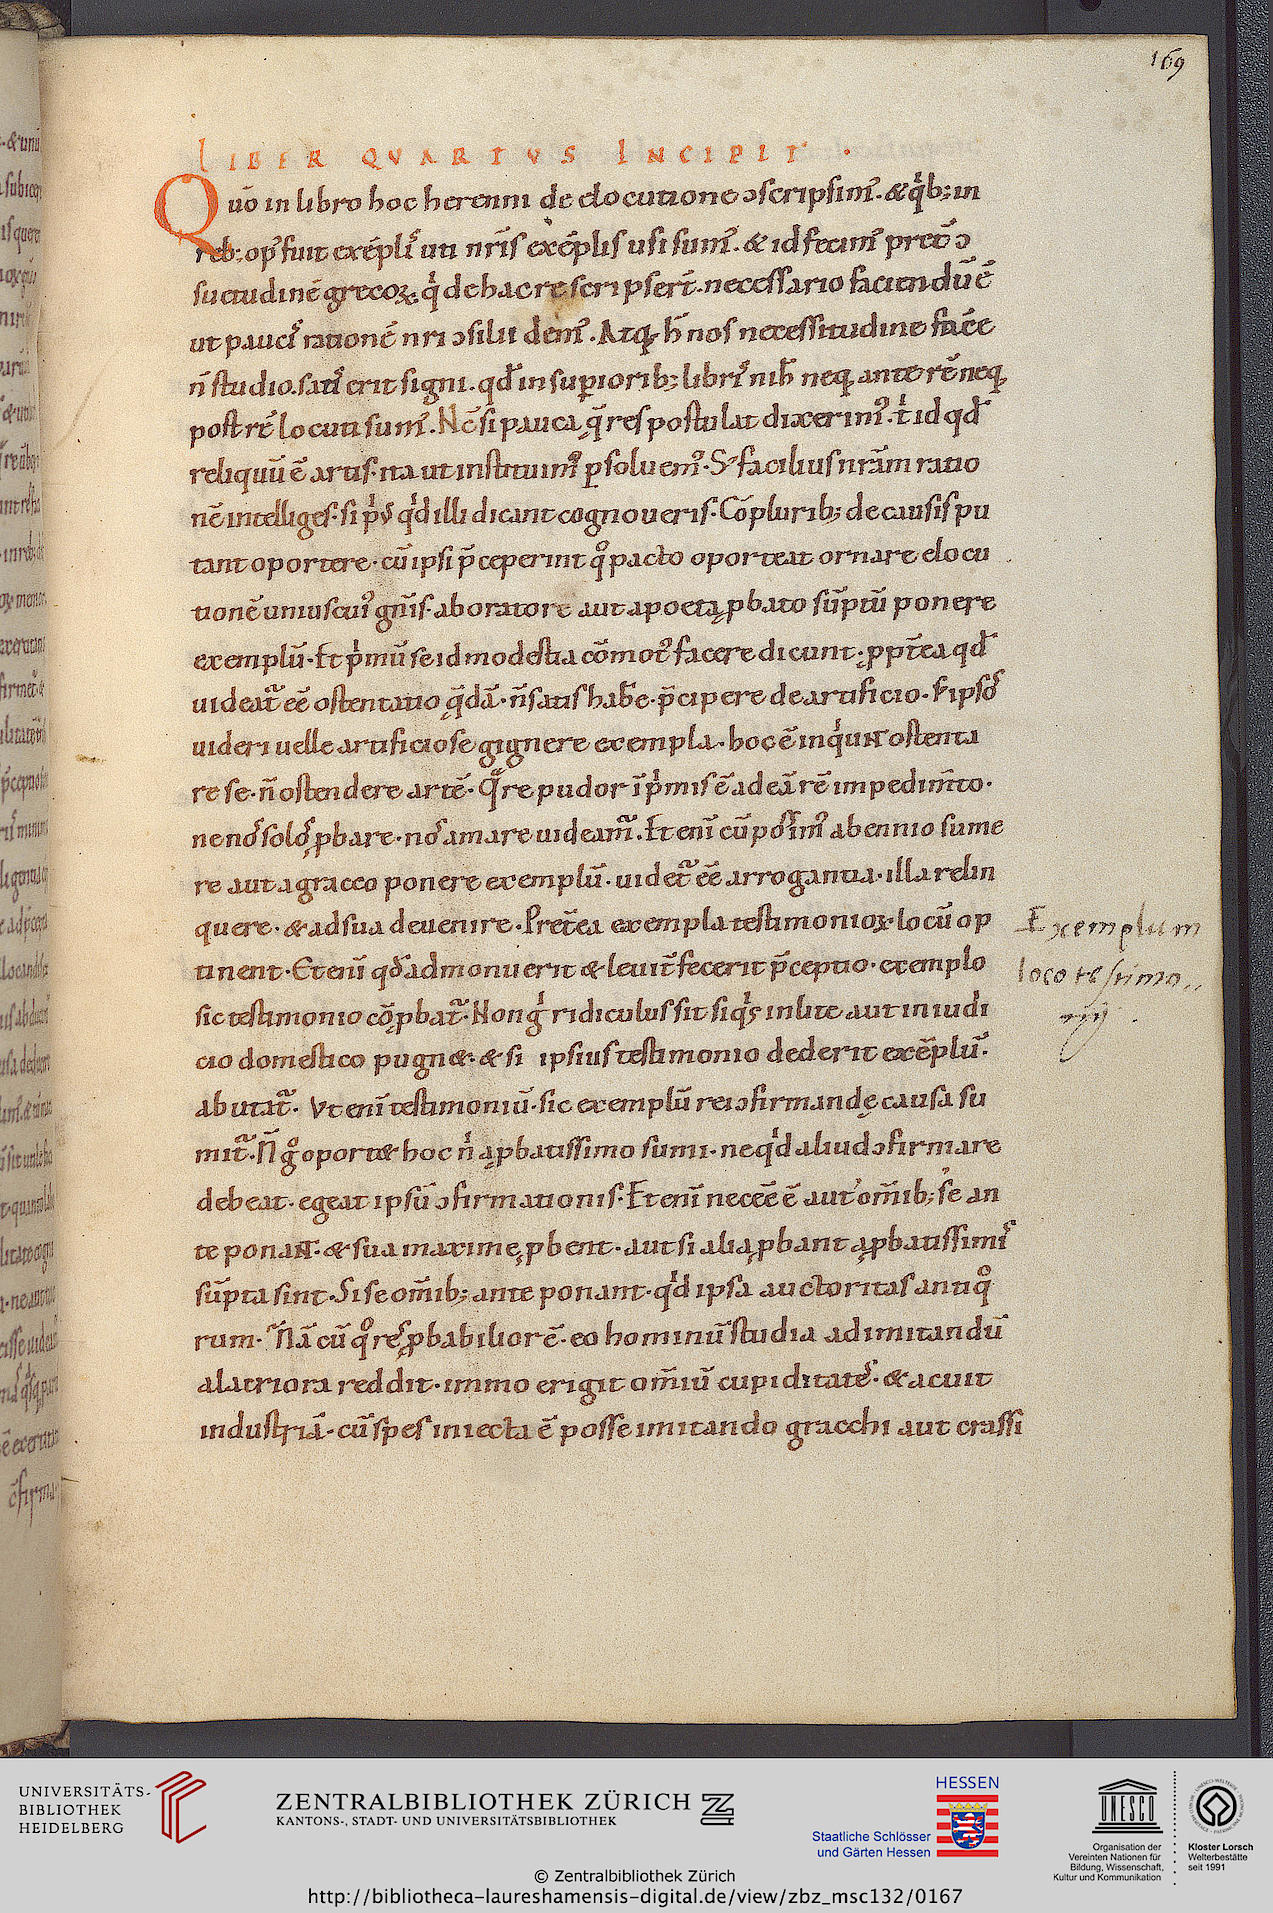 169
LIBER QVARTVS INCIPIT .
Quō in libro hoc herenni de elocutione ɔscripsim᷒. & qⁱb; in
reb; op᷒ fuit exēpl᷒ uti nr̄is exēplis usi sum᷒. & id fecim᷒ pret̄ ɔ
suetudinē grecoꝝ qⁱ de hac re scripser̄t. necessario faciendū ē
ut pauc᷒ rationē nr̄i ɔsilii dem᷒. Atq; h̄ nos necessitudine facēe
n̄ studio. sat᷒ erit signi. qd̄ in superiorib; libr᷒ nih̄ neq; ante rē neq;
post rē locuti sum᷒. Nc̄ si pauca q̄ res postulat dixerim᷒. tⁱ id qd̄
reliquū ē artis. ita ut instituim᷒ ꝑsoluem᷒. S; facilius nr̄am ratio
nē intelliges. si pⁱ᷒ qⁱd illi dicant cognoueris. Cōplurib; de causis pu
tant oportere. cū ipsi p̄ceperint qͦ pacto oporteat ornare elocu
tionē uniuscui᷒ gn̄is. ab oratore aut a poeta ꝓbato sūptū ponere
exemplū. Et pⁱmū se id modestia cōmot᷒ facere dicunt. ꝓpt̄ea qd̄
uideat᷒ ēe ostentatio q̄dā. n̄ satis hab̄e. p̄cipere de artificio. s; ipsos
uideri uelle artificiose gignere exempla. hoc ē inqⁱunt ostenta
re se. n̄ ostendere artē. Qͣre pudor ī pⁱmis ē ad eā rē impedim̄to.
ne nos solos ꝓbare. nos amare uideam᷒. Etenī cū possim᷒ ab ennio sume
re aut a gracco ponere exemplū. uidet᷒ ēe arrogantia. illa relin
quere. & ad sua deuenire. Pret̄ea exempla testimonioꝝ locū op
tinent. Etenī qd̄ admonuerit & leuit᷒ fecerit p̄ceptio. exemplo
sic testimonio cōꝓbat᷒. Non gⁱ ridiculus sit siqⁱs in lite aut in iudi
cio domestico pugn&. & si ipsius testimonio dederit exēplū.
abutat᷒. Vt enī testimoniū. sic exemplū rei ɔfirmandę causa su
mit᷒. N̄ gͦ oport& hoc nⁱ a ꝓbatissimo sumi. ne qⁱd aliud ɔfirmare
debeat. egeat ipsū ɔfirmationis. Etenī necēe ē aut om̄ib; se an
te ponant. & sua maxime ꝓbent. aut si alia ꝓbant a ꝓbatissim᷒
sūpta sint. Si se om̄ib; ante ponant. qⁱd ipsa auctoritas antiqͦ
rum. Nā cū qͦ res ꝓbabiliorē. eo hominū studia ad imitandū
alacriora reddit. immo erigit om̄iū cupiditates. & acuit
industriā. cū spes iniecta ē posse imitando gracchi aut crassi
Exemplum
loco testimo„
nij.
UNIVERSITÄTS-
BIBLIOTHEK
HEIDELBERG
ZENTRALBIBLIOTHEK ZÜRICH
KANTONS-, STADT- UND UNIVERSITÄTSBIBLIOTHEK
HESSEN
Staatliche Schlösser
und Gärten Hessen
UNESCO
Organisation der
Vereinten Nationen für
Bildung, Wissenschaft,
Kultur und Kommunikation
Kloster Lorsch
Welterbestätte
seit 1991
© Zentralbibliothek Zürich
http://bibliotheca-laureshamensis-digital.de/view/zbz_msc132/0167